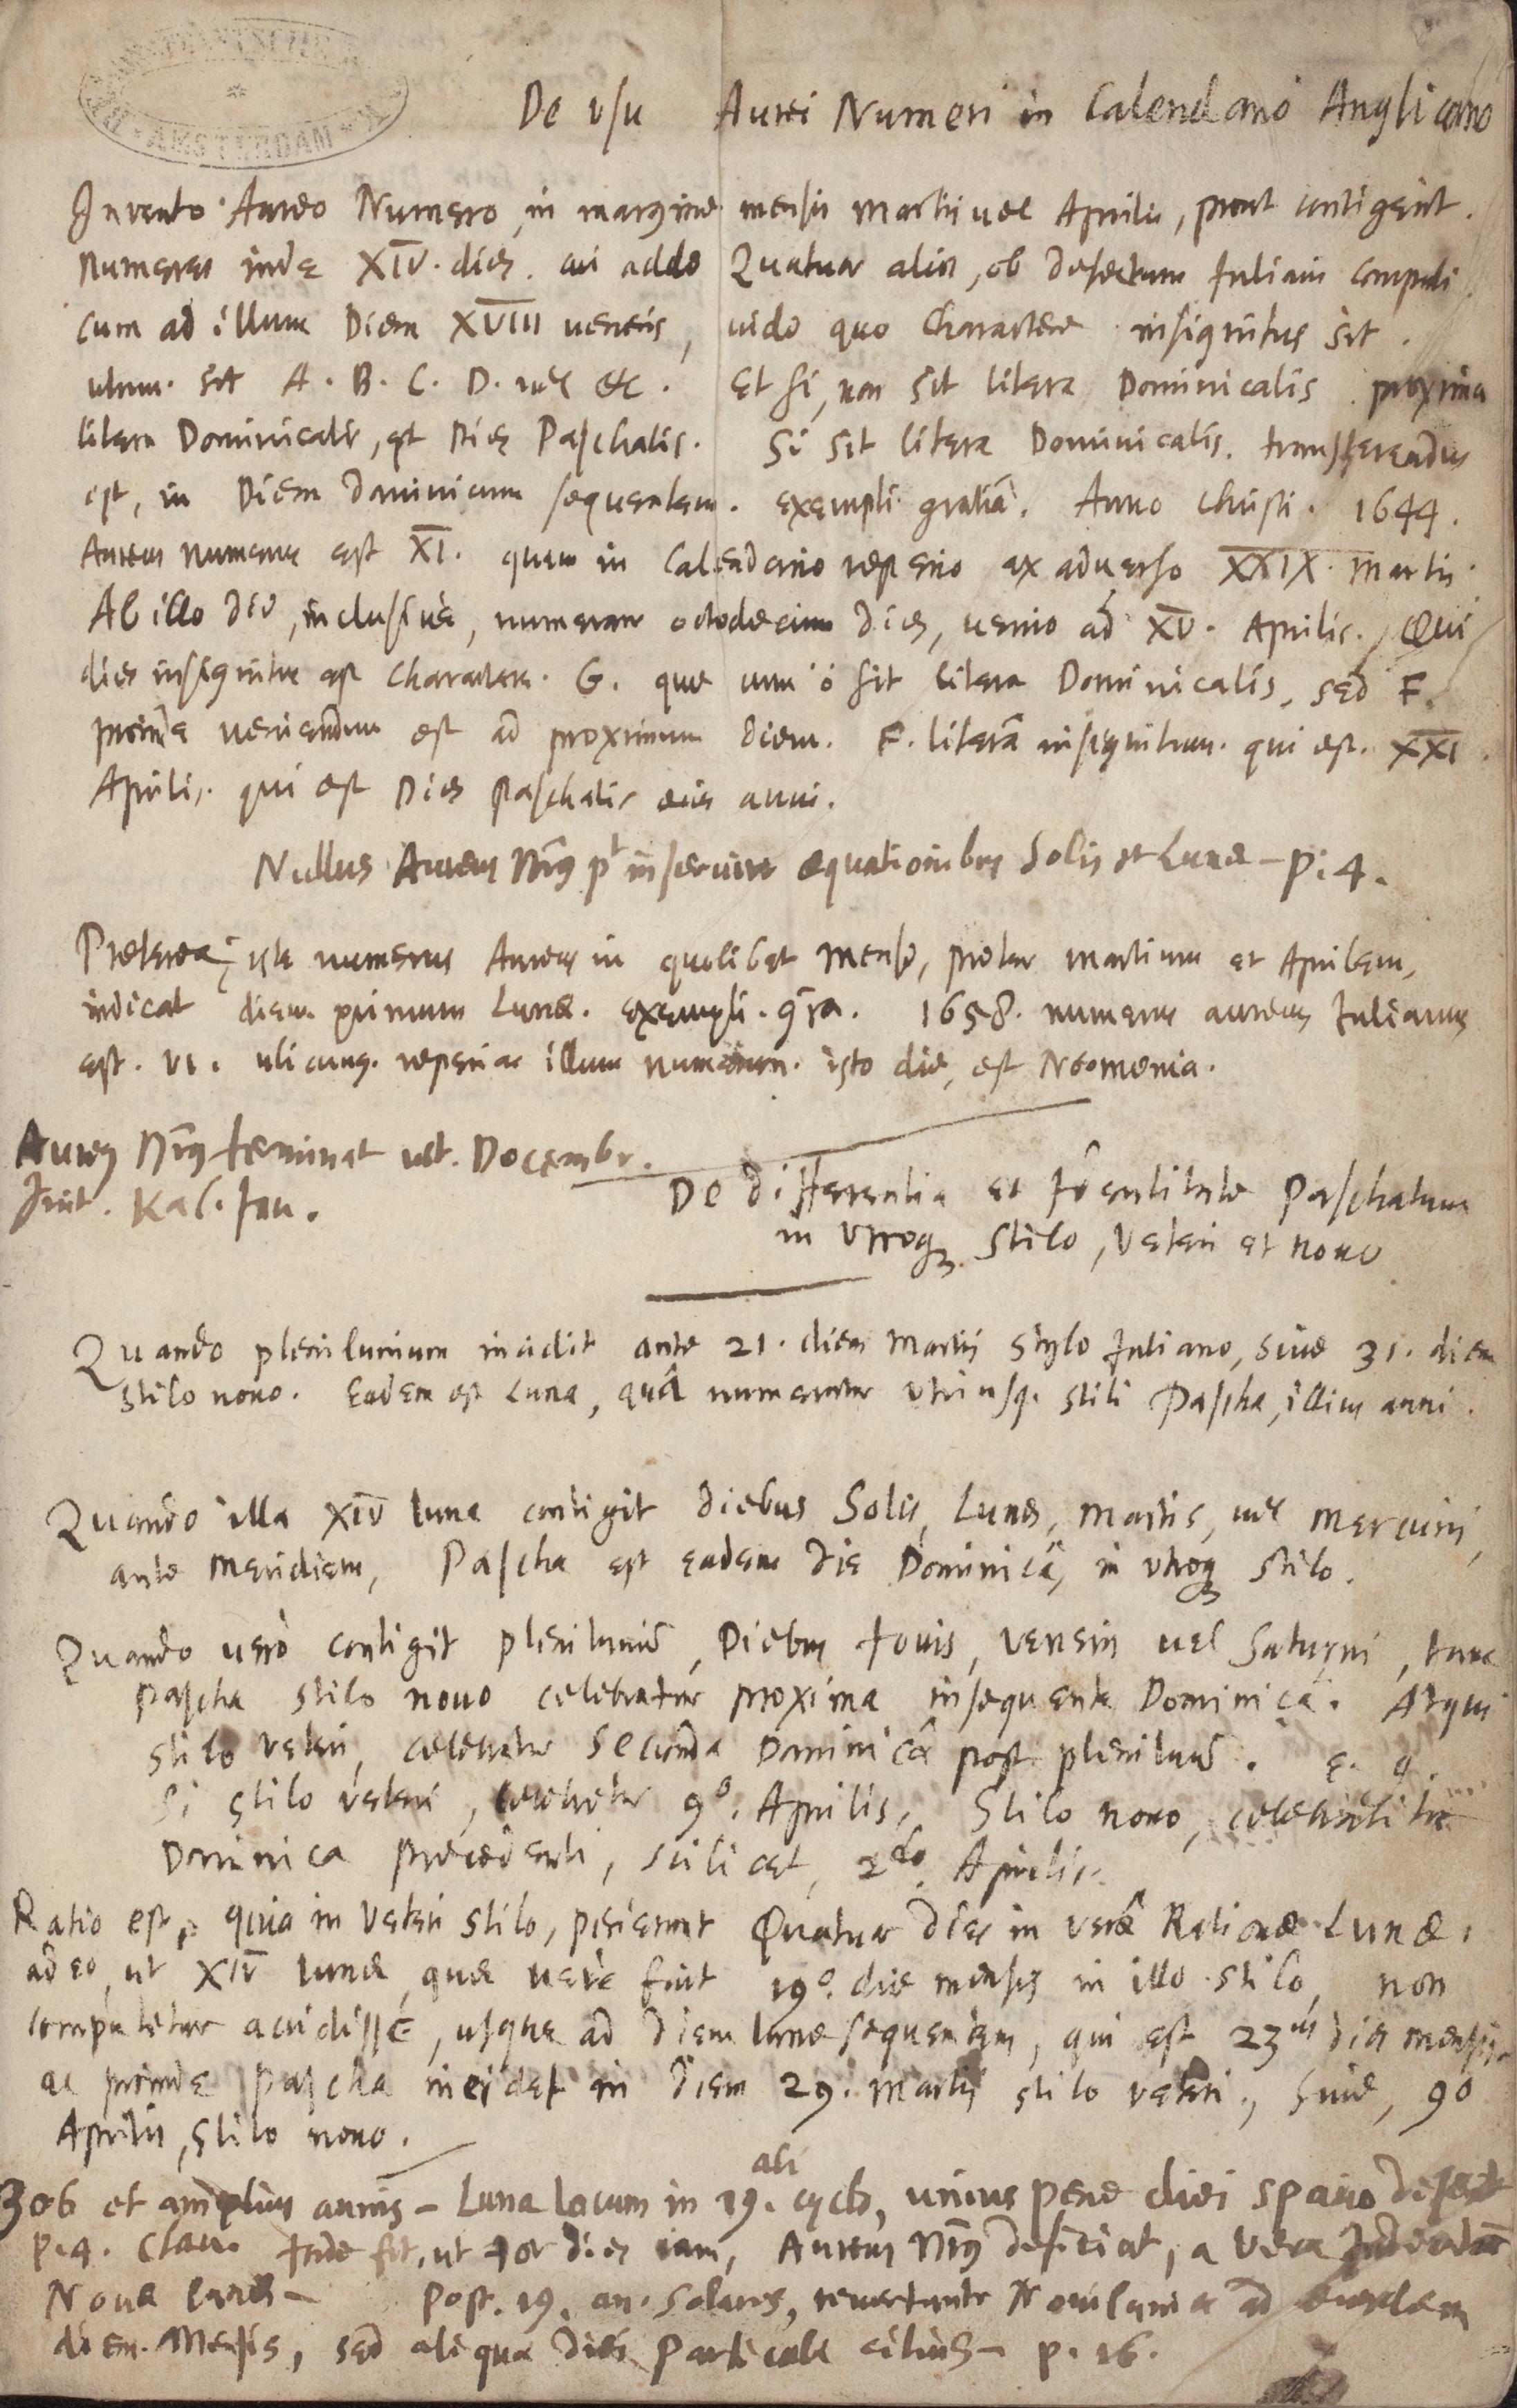 De vsu Aurei Numeri in Calendario Anglicano
AMSTERDAM
Invento Aureo Numero, in margine mensis Martii vel Aprilis, prout contigerit.
numeres inde XIV. dies. cui addo Quatuor alios, ob defectum Juliani computi
cum ad illum Diem XVIII veneris, vide quo Charactere insignitus sit.
utrum sit A. B. C. D. vel &c. Et si, non sit litera Dominicalis proxima
litera Dominicalis, est Dies Paschalis. Si sit litera Dominicalis. transferendus
est, in Diem dominicum sequentem. exempli gratiâ. Anno Christi. 1644.
Aureus numerus est XI. quem in Calendario reperio ex adverso XXIX. Martii.
Ab illo die, inclusivè, numerans octodecim dies, venio ad XV. Aprilis. Qui
dies insignitur est Charactere. G. que cum õ sit litera Dominicalis, sed F.
proinde veniendum est ad proximum diem. F. literâ insignitum. qui est. XXI.
Aprilis. qui est Dies Paschalis eius anni.
Nullus Aureus Nrũs pt inservire equationibus Solis et Lunæ – p: 4.
Preterea, iste numerus Aureus in quolibet mense, preter martium et Aprilem,
indicat diem primum Lunæ. exempli. grã. 1658. numerus aureus Julianus
est. VI. ubicunq. reperias illum numerum. isto die, est Neomenia.
Aureus Nrũs terminat ult. Decembr.
Init. Kal. Jan.
De differentia et identitate Paschatum
in Vtroq stilo, veteri et novo
Quando plenilunium incidit ante 21. diem Martij stylo Juliano, sive 31. diem
stilo novo. Eadem est Luna, quâ numeratur utriusq. stili Pascha, illius anni.
Quando illa XIV luna contigit diebus Solis, Lunæ, Martis, vel Mercurii,
ante Meridiem, Pascha est eadem die Dominicâ, in vtroq stilo.
Quando verò contigit pleniluniũ, Diebus Jovis, Veneris vel Saturni, tunc
Pascha stilo novo celebratur proxima insequente Dominicâ. Atqui
stilo veteri, celebratur Secunda Dominicâ post pleniluniũ. E. g.
Si stilo veteri, celebretur 9º. Aprilis, Stilo novo, celebrabitur
Dominica precedenti, scilicet, 2do. Aprilis.
Ratio est, quia in Veteri stilo, perierunt Quatuor dies in verâ Ratione Lunæ.
adeo, ut XIV lunæ, quæ verè fuit 19º. die mensis in illo stilo, non
computetur accidisse, usque ad diem lune sequentem, qui est 23us dies mensis
ac proinde Pascha incidet in diem 29. Martij stilo veteri, Sive, 9º
Aprilis, stilo novo.
306 et amplius annis – Luna locum in 19.ali cyclo, unius pene diei spatio deserit
p. 4. Clav. Inde fit, ut tot dies iam, Aureus Nrũs deficiat, a vera
Novæ Lunæ – Post. 19. an. Solares, revertuntur Novilunia ad eundem
diem. Mensis, sed aliqua diei Particula citius – p. 16.